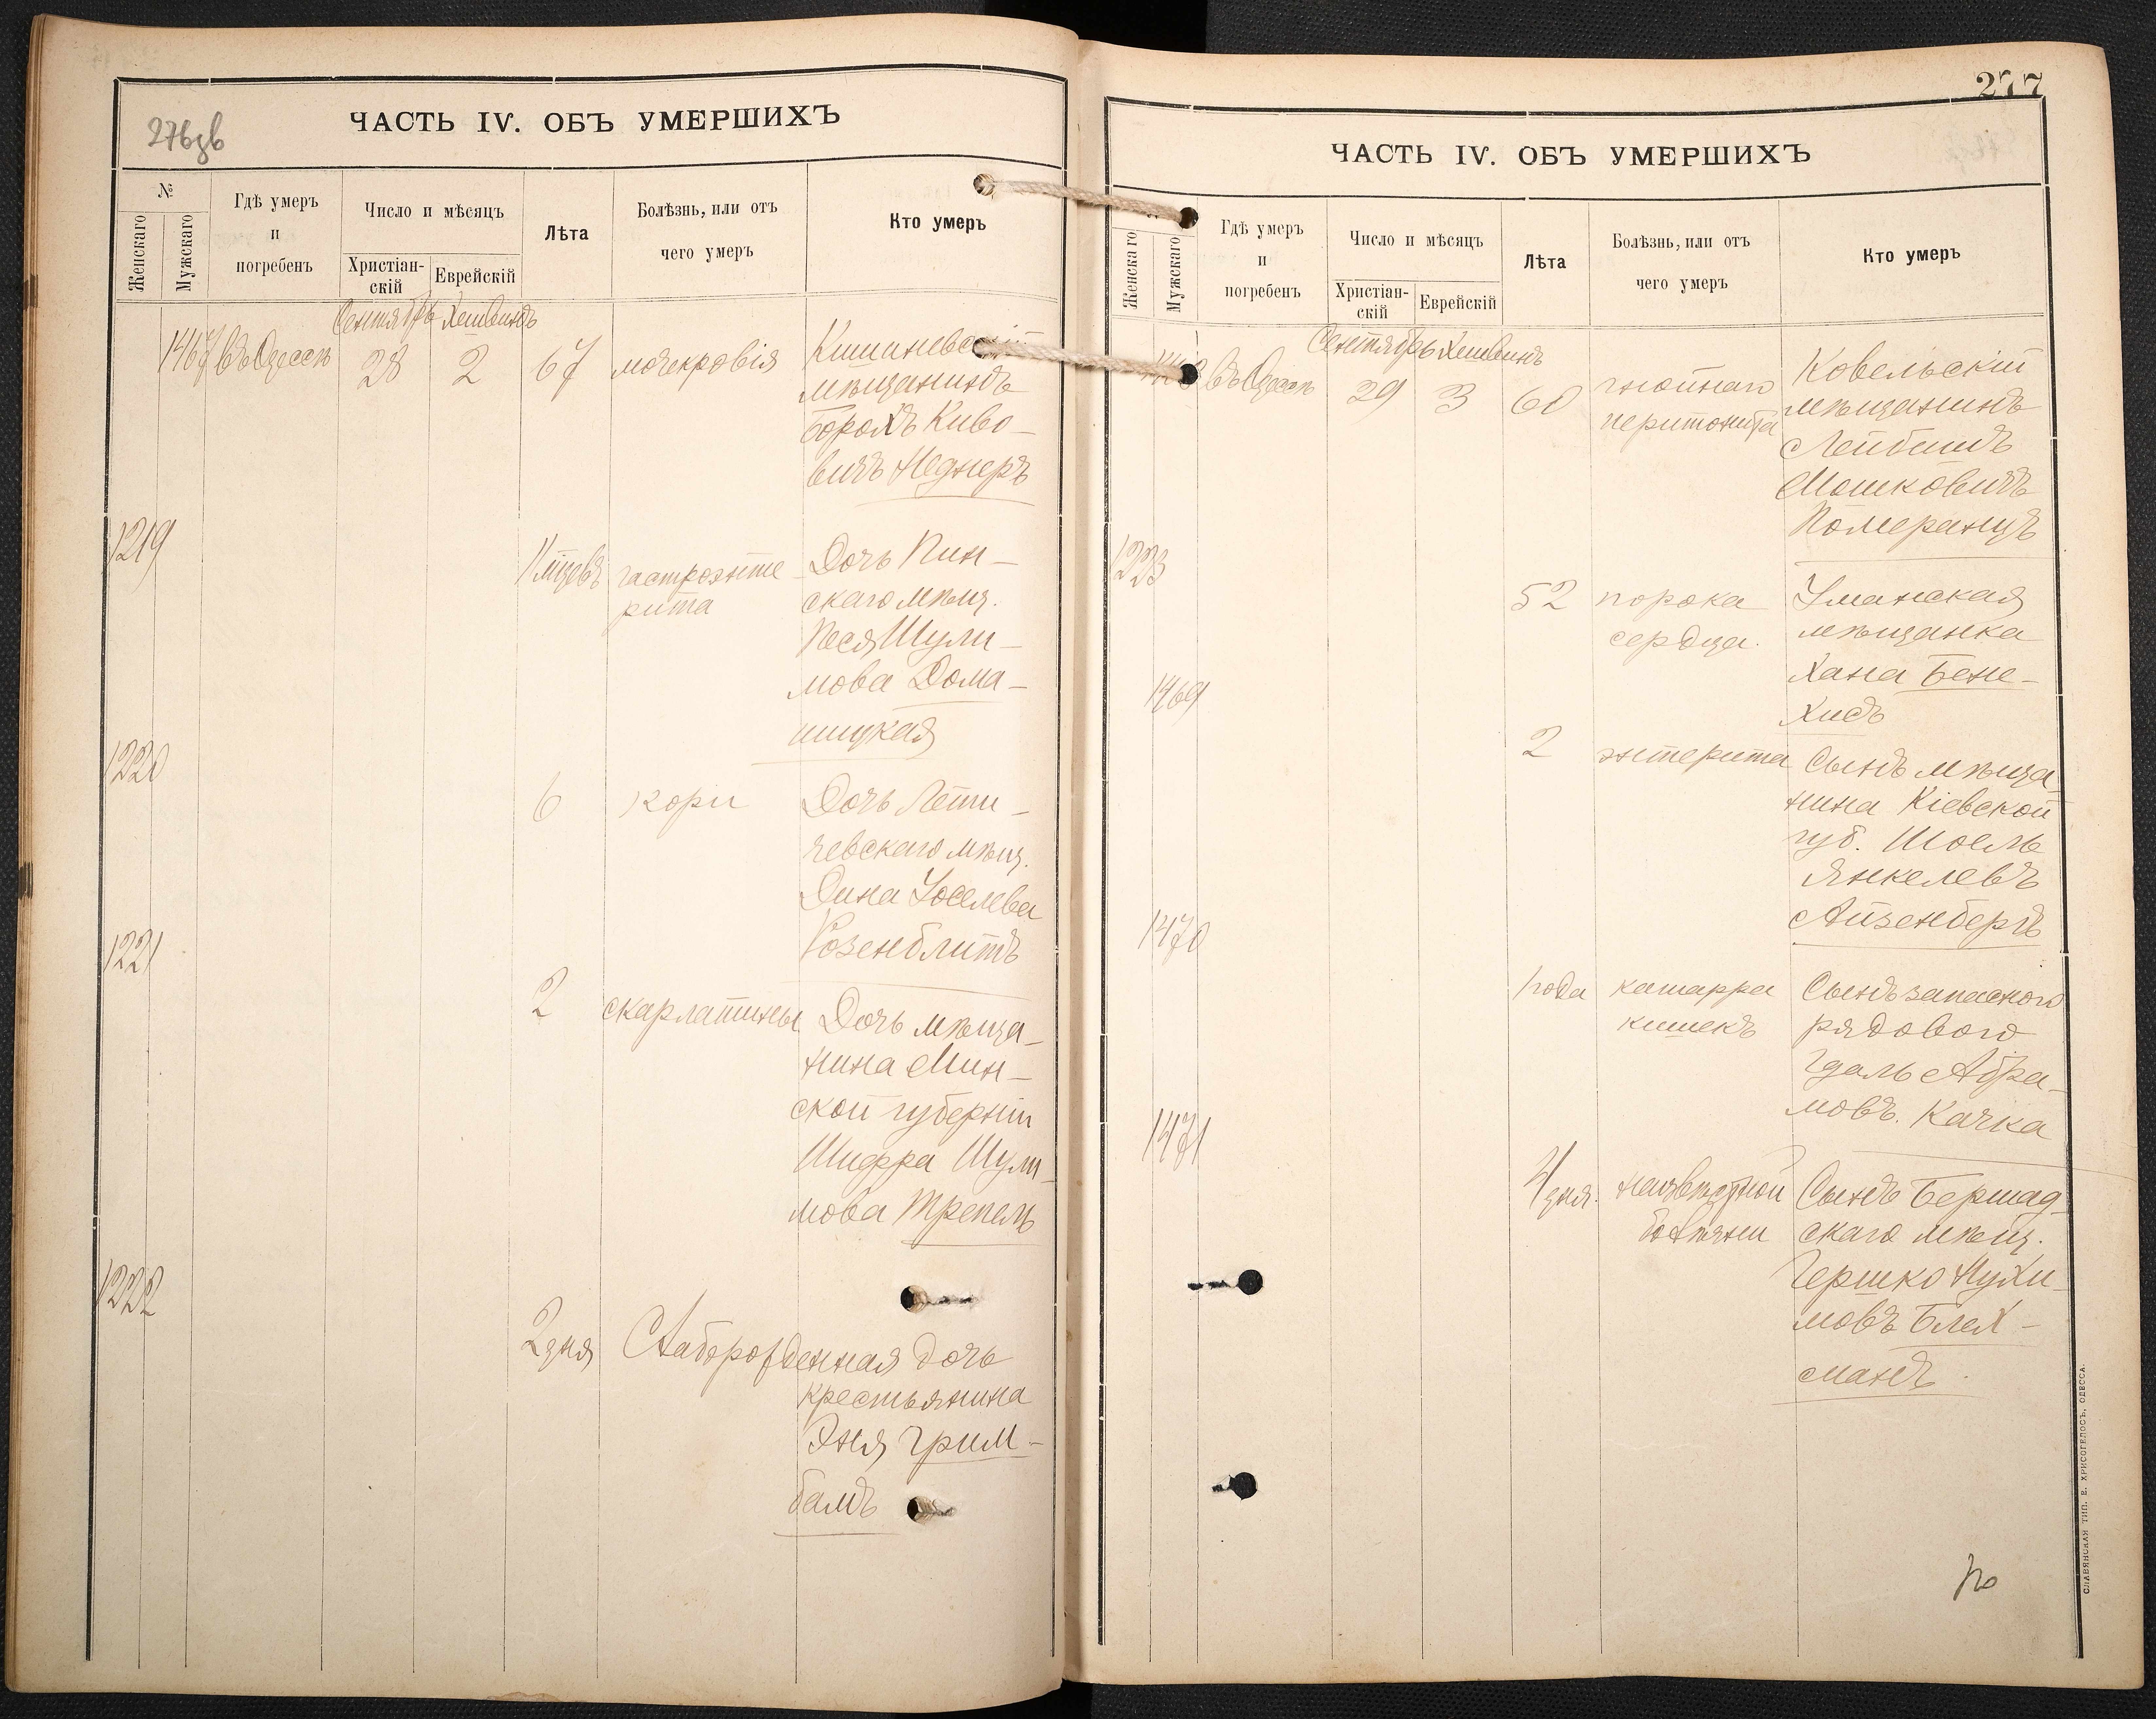 276зв
ЧАСТЬ IV. ОБЪ УМЕРШИХЪ
№
Женскаго
Мужскаго
Гдѣ умеръ
и
погребенъ
Число и мѣсяцъ
Христіан-
скій
Еврейскій
Лѣта
Болѣзнь, или отъ
чего умеръ
Кто умеръ
Сентябрь Хешвинъ
1467 въ Одессѣ 28 2 67 мочекровія
мѣщанинъ
Борохъ Киво-
вичъ Неднеръ
1219
11 мцевъ гастроэнте-
рита
Дочь Пин-
скаго мѣщ.
Песя Шули-
мова Дома-
шицкая
1220
6 кори
Дочь Лети-
чевскаго мѣщ.
Дина Іоселева
Розенблитъ
1221
2 скарлатины
Дочь мѣща-
нина Мин-
ской губерніи
Шифра Шули-
мова Трепель
1222
2 дня Слаборожденная дочь
крестьянина
Эня Грим-
бамъ
277
ЧАСТЬ IV. ОБЪ УМЕРШИХЪ
Женскаго
Мужскаго
Гдѣ умеръ
и
погребенъ
Число и мѣсяцъ
Христіан-
скій
Еврейскій
Лѣта
Болѣзнь, или отъ
чего умеръ
Кто умеръ
Сентябрь Хешвинъ
въ Одессѣ 29 3 60 гнойнаго
перитонита
Ковельскій
мѣщанинъ
Лейбишъ
Мошковичъ
Померанцъ
1223
52 порока
сердца.
Уманская
мѣщанка
Хана Бене-
хисъ
1469
2 энтерита
Сынъ мѣща-
нина Кіевской
губ. Шоель
Янкелевъ
Айзенбергъ
1470
1 года катарра
кишекъ
Сынъ запасного
рядового
Гдаль Абра-
мовъ. Качка
1471
4 дня.
Сынъ Бершад-
скаго мѣщ.
Гершко Нухи-
мовъ Блех-
манъ.
СЛАВЯНСКАЯ ТИП. Е. ХРИСОГЕЛОСЪ, ОДЕССА.